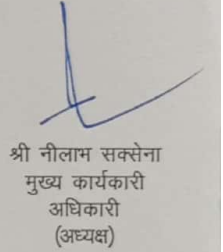 श्री नीलाभ सक्सेना
मुख्य कार्यकारी
अधिकारी
(अध्यक्ष)